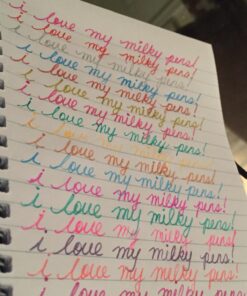 i love my milky pens!
i love my milky pens!
i love my milky pens!
i love my milky pens!
i love my milky pens!
i love my milky pens!
i love my milky pens!
i love my milky pens!
i love my milky pens!
i love my milky pens!
i love my milky pens!
i love my milky pens!
i love my milky pens!
i love my milky pens!
i love my milky pens!
i love my milky pens!